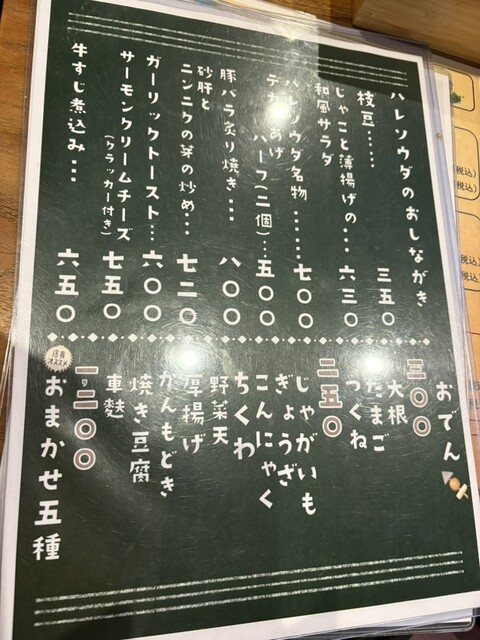 ハレソウダのおしながき
枝豆……三五〇
じゃこと薄揚げの
和風サラダ…六三〇
ハレソウダ名物
テナ あげ……七〇〇
ハーフ(二個)…五〇〇
豚バラ炙り焼き…八〇〇
砂肝と
ニンニクの芽の炒め…七二〇
ガーリックトースト…六〇〇
サーモンクリームチーズ
(クラッカー付き)七五〇
牛すじ煮込み…六五〇
おでん
三〇〇
大根
たまご
つくね
二五〇
じゃがいも
ぎょうざ
こんにゃく
ちくわ
野菜天
厚揚げ
がんもどき
焼き豆腐
車麩
一,二〇〇
店長
オススメ
おまかせ五種
税込)
税込)
税込)
税込)